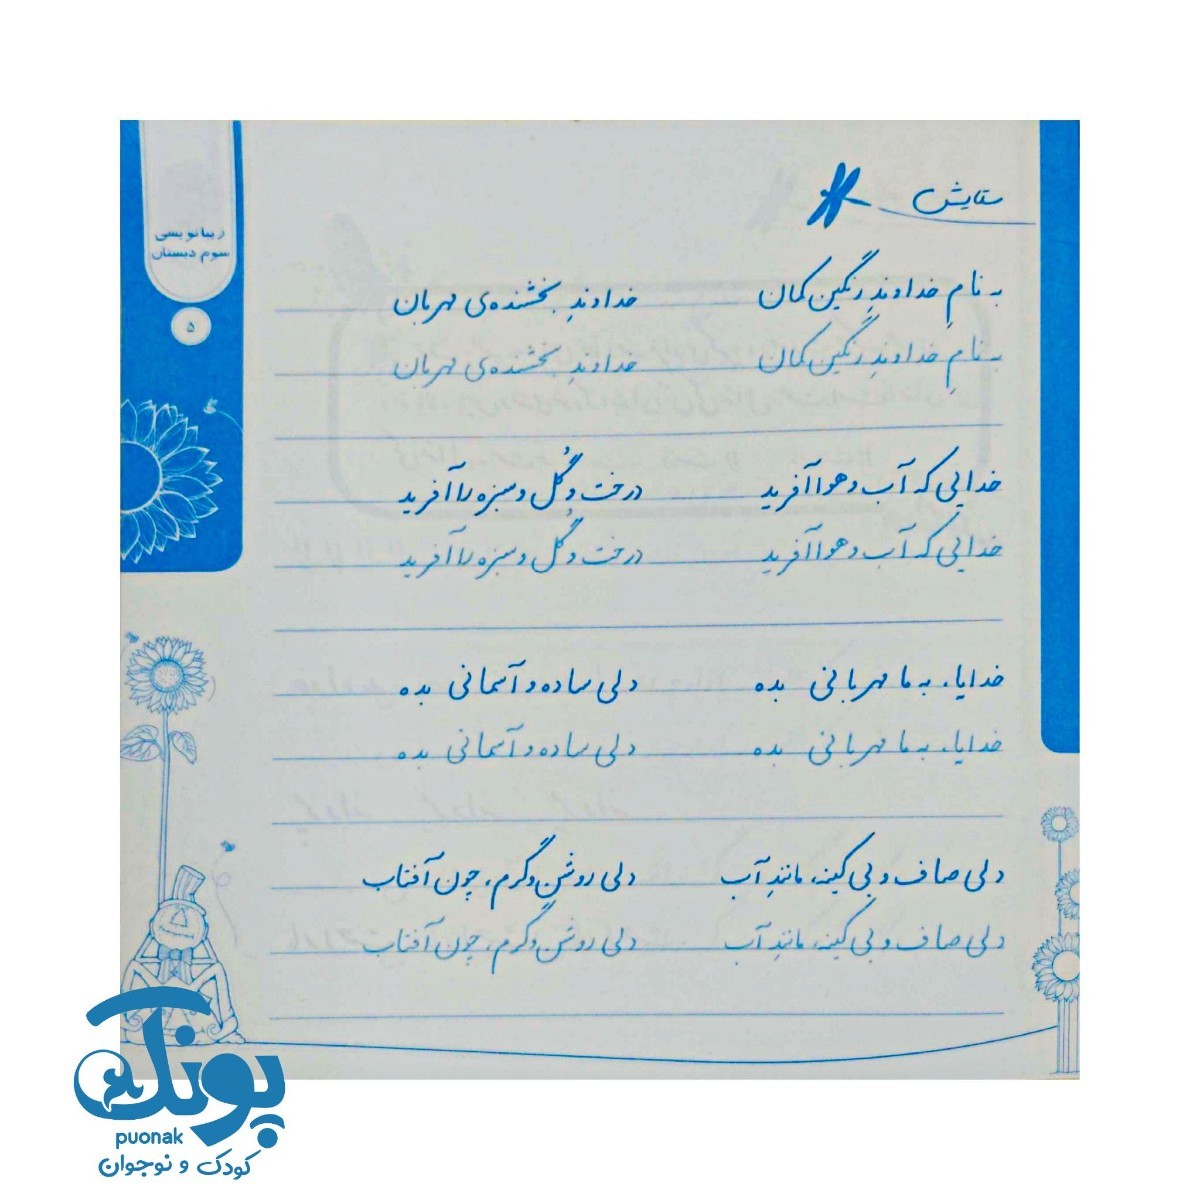 ستایش
زیبانویسی
سوم دبستان
۵
به نامِ خداوندِ رنگین کمان خداوندِ بخشنده‌ی مهربان
به نامِ خداوندِ رنگین کمان خداوندِ بخشنده‌ی مهربان
خدایی که آب و هوا آفرید درخت و گُل و سبزه را آفرید
خدایی که آب و هوا آفرید درخت و گُل و سبزه را آفرید
خدایا، به ما مهربانی بده دلی ساده و آسمانی بده
خدایا، به ما مهربانی بده دلی ساده و آسمانی بده
دلی صاف و بی کینه، مانندِ آب دلی روشن و گرم، چون آفتاب
دلی صاف و بی کینه، مانندِ آب دلی روشن و گرم، چون آفتاب
پونک
puonak
کودک و نوجوان